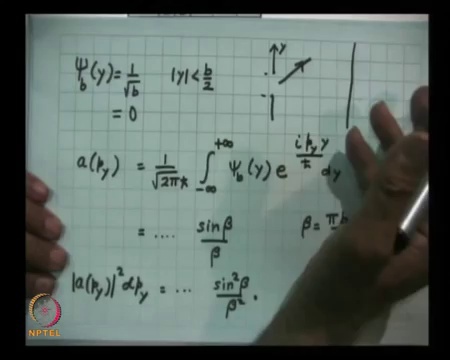 Ψ_b(y) = 1/√b |y| < b/2
= 0
y
a(p_y) = 1/√(2πħ) ∫_{-∞}^{+∞} Ψ_b(y) e^{i p_y y/ħ} dy
= .... sinβ/β β = πb
|a(p_y)|² dp_y = ... sin²β/β² .
NPTEL